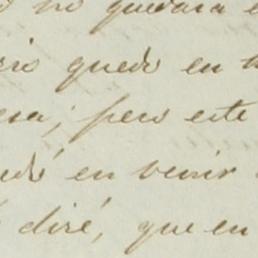 no quedara e
rio quedo en t
esa; pero este
uedé en venir
diré, que en